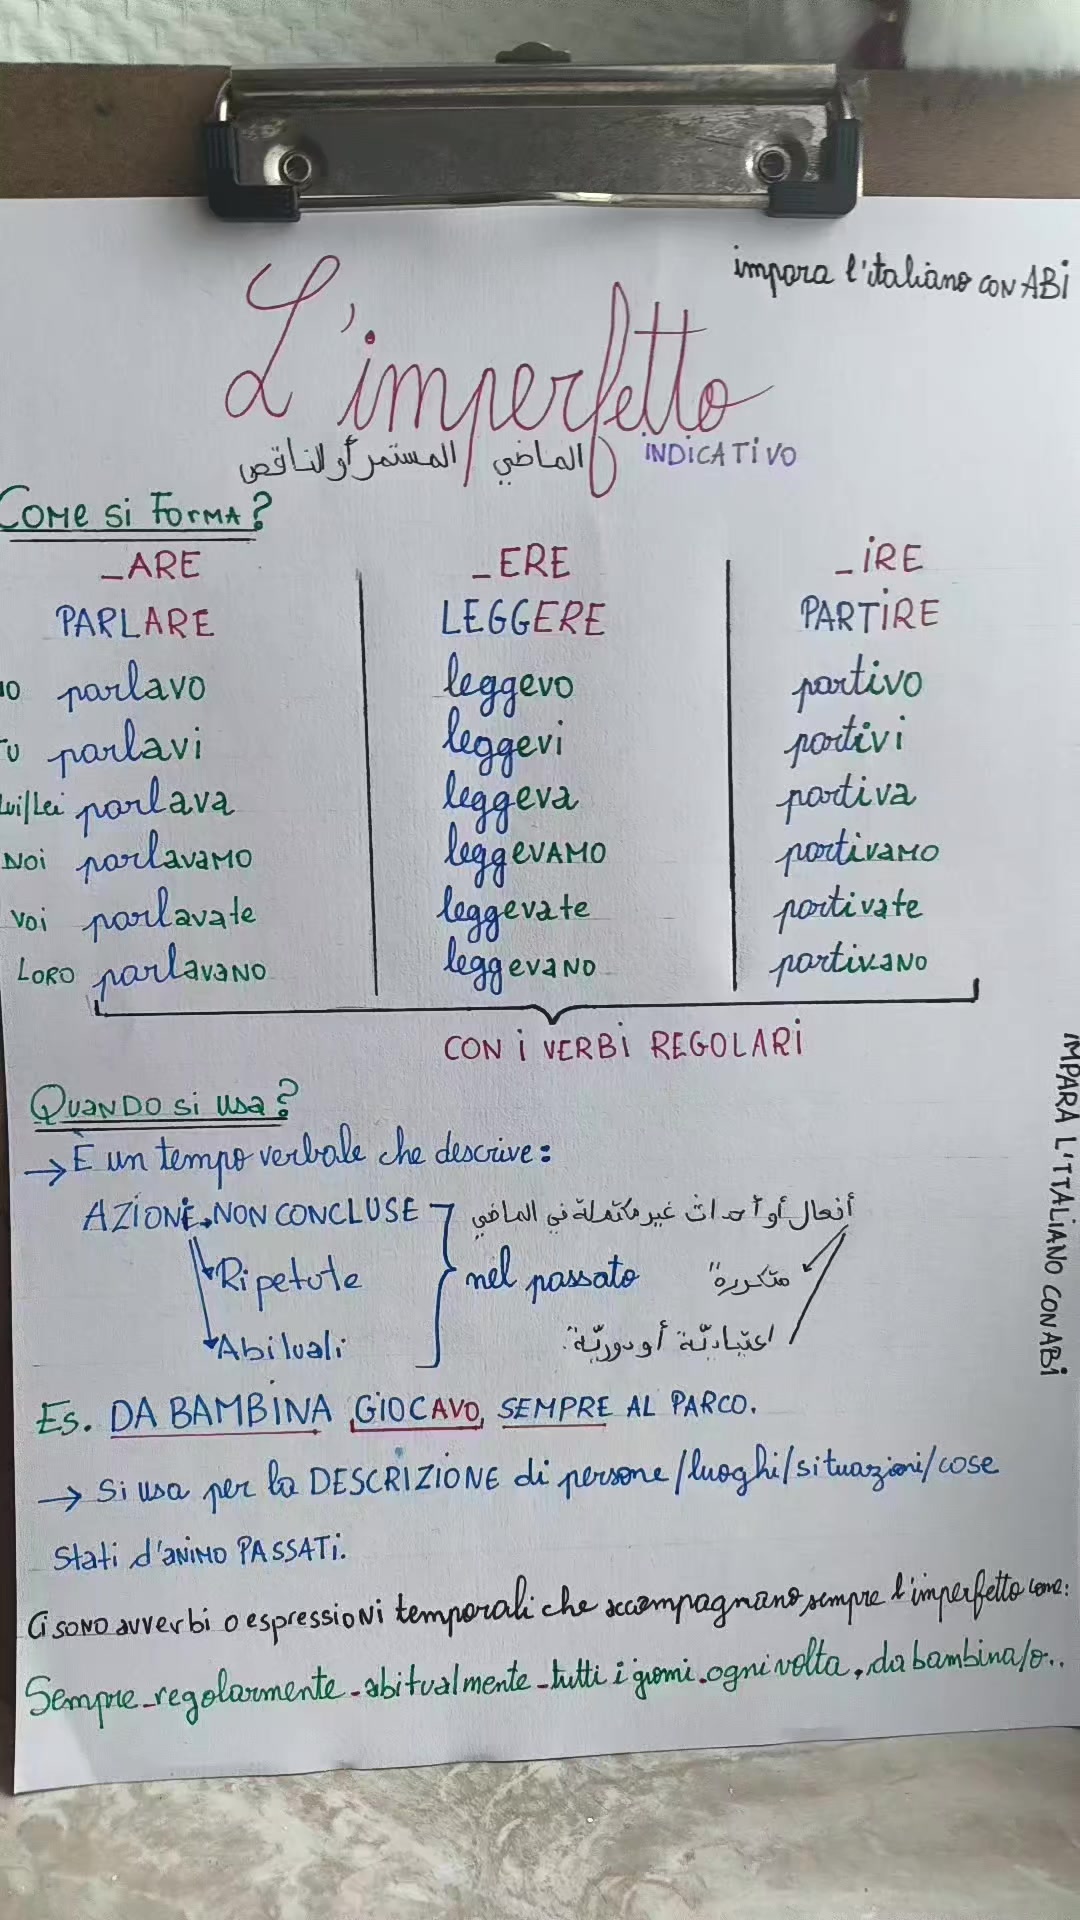 impara l'italiano CON ABI
L'imperfetto
الماضي المستمر أو الناقص INDICATIVO
COME Si FORMA?
_ARE _ERE _iRE
PARLARE LEGGERE PARTiRE
IO parlavo leggevo partivo
TU parlavi leggevi partivi
Lui/Lei parlava leggeva partiva
NOi parlavaMO leggEVAMO partivaMO
Voi parlavate leggevate partivate
LORO parlavaNO leggevaNO partivaNO
CON i VERBi REGOLARi
QUANDO si usa?
→ È un tempo verbale che descrive:
AZIONI NON CONCLUSE أفعال أو أحداث غير مكتملة في الماضي
Ripetute nel passato متكررة
Abituali اعتياديّة أو دوريّة.
Es. DA BAMBINA GIOCAVO SEMPRE AL PARCO.
→ Si usa per la DESCRIZIONE di persone/luoghi/situazioni/cose
Stati d'aNiMO PASSATi.
Ci SONO avverbi o espressioNi temporali che accompagnano sempre l'imperfetto come:
Sempre_regolarmente_abitualmente_tutti i giorni_ogni volta, da bambina/o..
IMPARA L'ITALIANO CON ABI